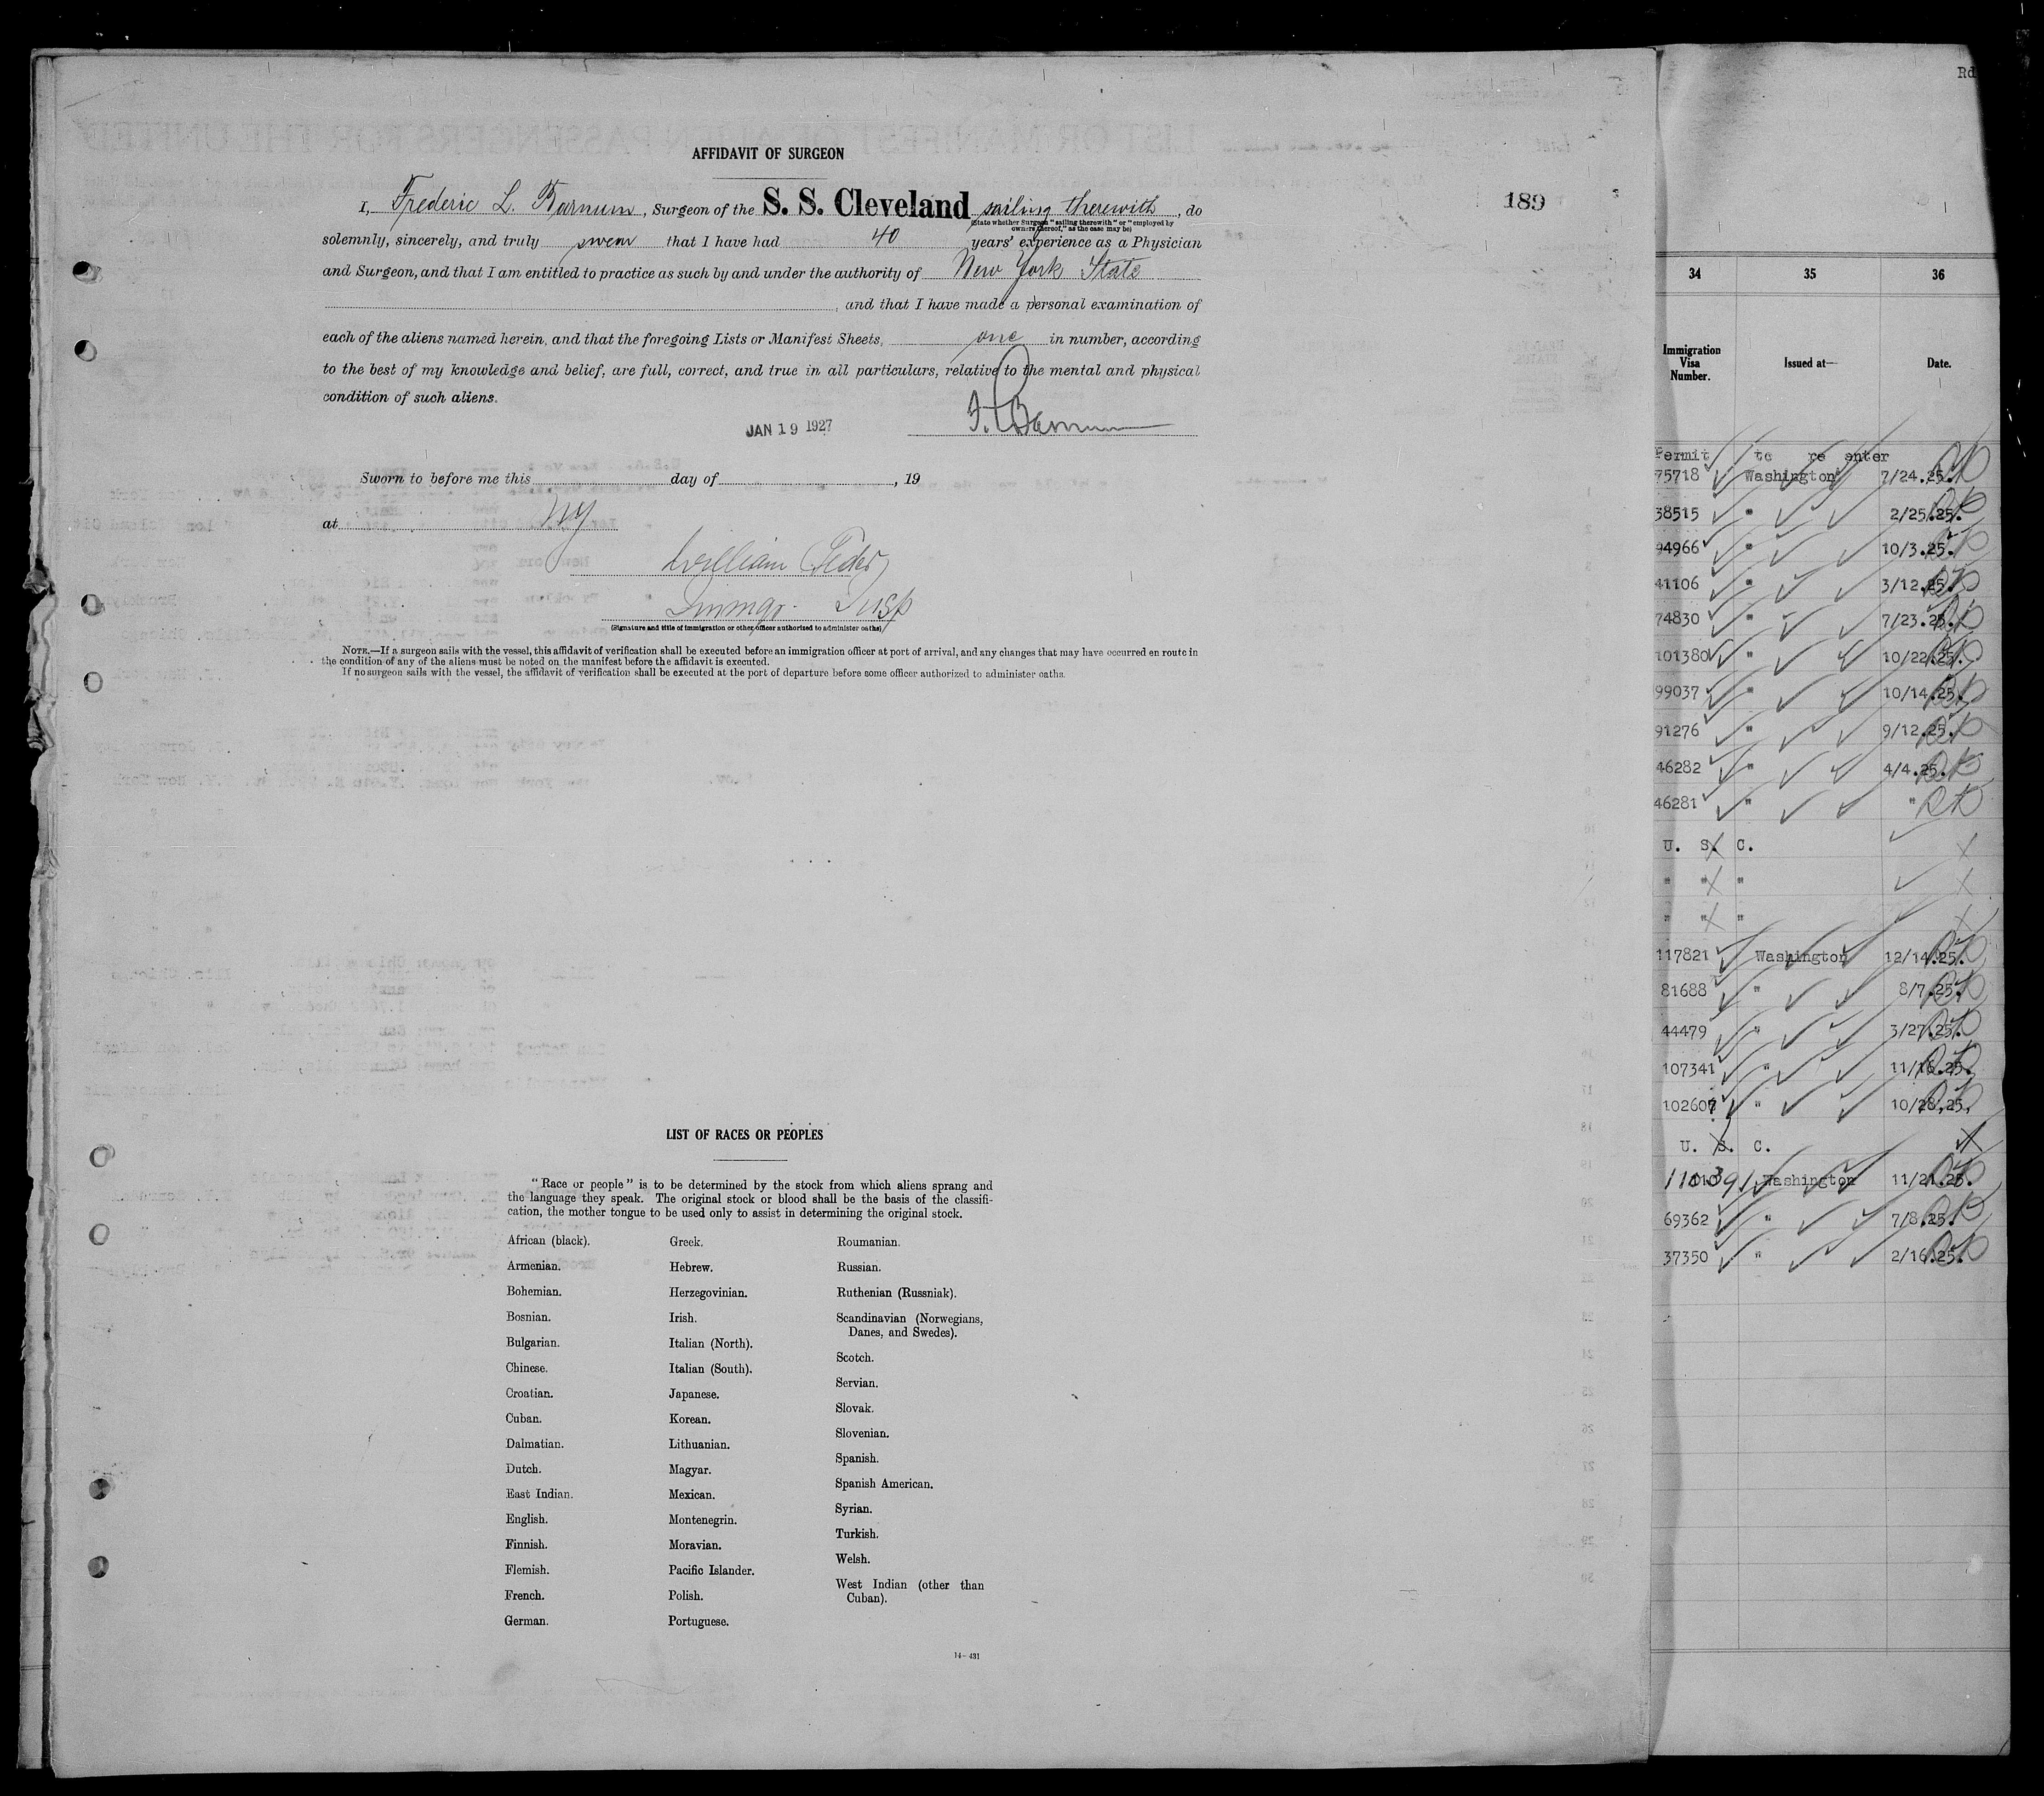 Rd
AFFIDAVIT OF SURGEON
I, Frederic L. Barnum, Surgeon of the S. S. Cleveland sailing therewith, do
(State whether Surgeon "sailing therewith" or "employed by
owners thereof," as the case may be)
189
solemnly, sincerely, and truly swear that I have had 40 years' experience as a Physician
and Surgeon, and that I am entitled to practice as such by and under the authority of New York State
, and that I have made a personal examination of
each of the aliens named herein, and that the foregoing Lists or Manifest Sheets, one in number, according
to the best of my knowledge and belief, are full, correct, and true in all particulars, relative to the mental and physical
condition of such aliens.
F. L. Barnum
JAN 19 1927
Sworn to before me this day of , 19
at NY
William
Immgr. Insp
(Signature and title of immigration or other officer authorized to administer oaths)
NOTE.—If a surgeon sails with the vessel, this affidavit of verification shall be executed before an immigration officer at port of arrival, and any changes that may have occurred en route in
the condition of any of the aliens must be noted on the manifest before the affidavit is executed.
If no surgeon sails with the vessel, the affidavit of verification shall be executed at the port of departure before some officer authorized to administer oaths.
LIST OF RACES OR PEOPLES
"Race or people" is to be determined by the stock from which aliens sprang and
the language they speak. The original stock or blood shall be the basis of the classifi-
cation, the mother tongue to be used only to assist in determining the original stock.
African (black).
Armenian.
Bohemian.
Bosnian.
Bulgarian.
Chinese.
Croatian.
Cuban.
Dalmatian.
Dutch.
East Indian.
English.
Finnish.
Flemish.
French.
German.
Greek.
Hebrew.
Herzegovinian.
Irish.
Italian (North).
Italian (South).
Japanese.
Korean.
Lithuanian.
Magyar.
Mexican.
Montenegrin.
Moravian.
Pacific Islander.
Polish.
Portuguese.
Roumanian.
Russian.
Ruthenian (Russniak).
Scandinavian (Norwegians,
Danes, and Swedes).
Scotch.
Servian.
Slovak.
Slovenian.
Spanish.
Spanish American.
Syrian.
Turkish.
Welsh.
West Indian (other than
Cuban).
14-431
34 35 36
Immigration
Visa
Number.
Issued at—
Date.
Permit to re enter
75718 Washington 7/24.25.
38515 " 2/25.25.
94966 " 10/3.25.
41106 " 3/12.25.
74830 " 7/23.25.
101380 " 10/22.25.
99037 " 10/14.25.
91276 " 9/12.25.
46282 " 4/4.25.
46281 " "
U. S. C.
" " "
" " "
117821 Washington 12/14.25.
81688 " 8/7.25.
44479 " 3/27.25.
107341 " 11/16.25.
102607 " 10/28.25.
U. S. C.
Washington 11/21.25.
69362 " 7/8.25.
37350 " 2/16.25.